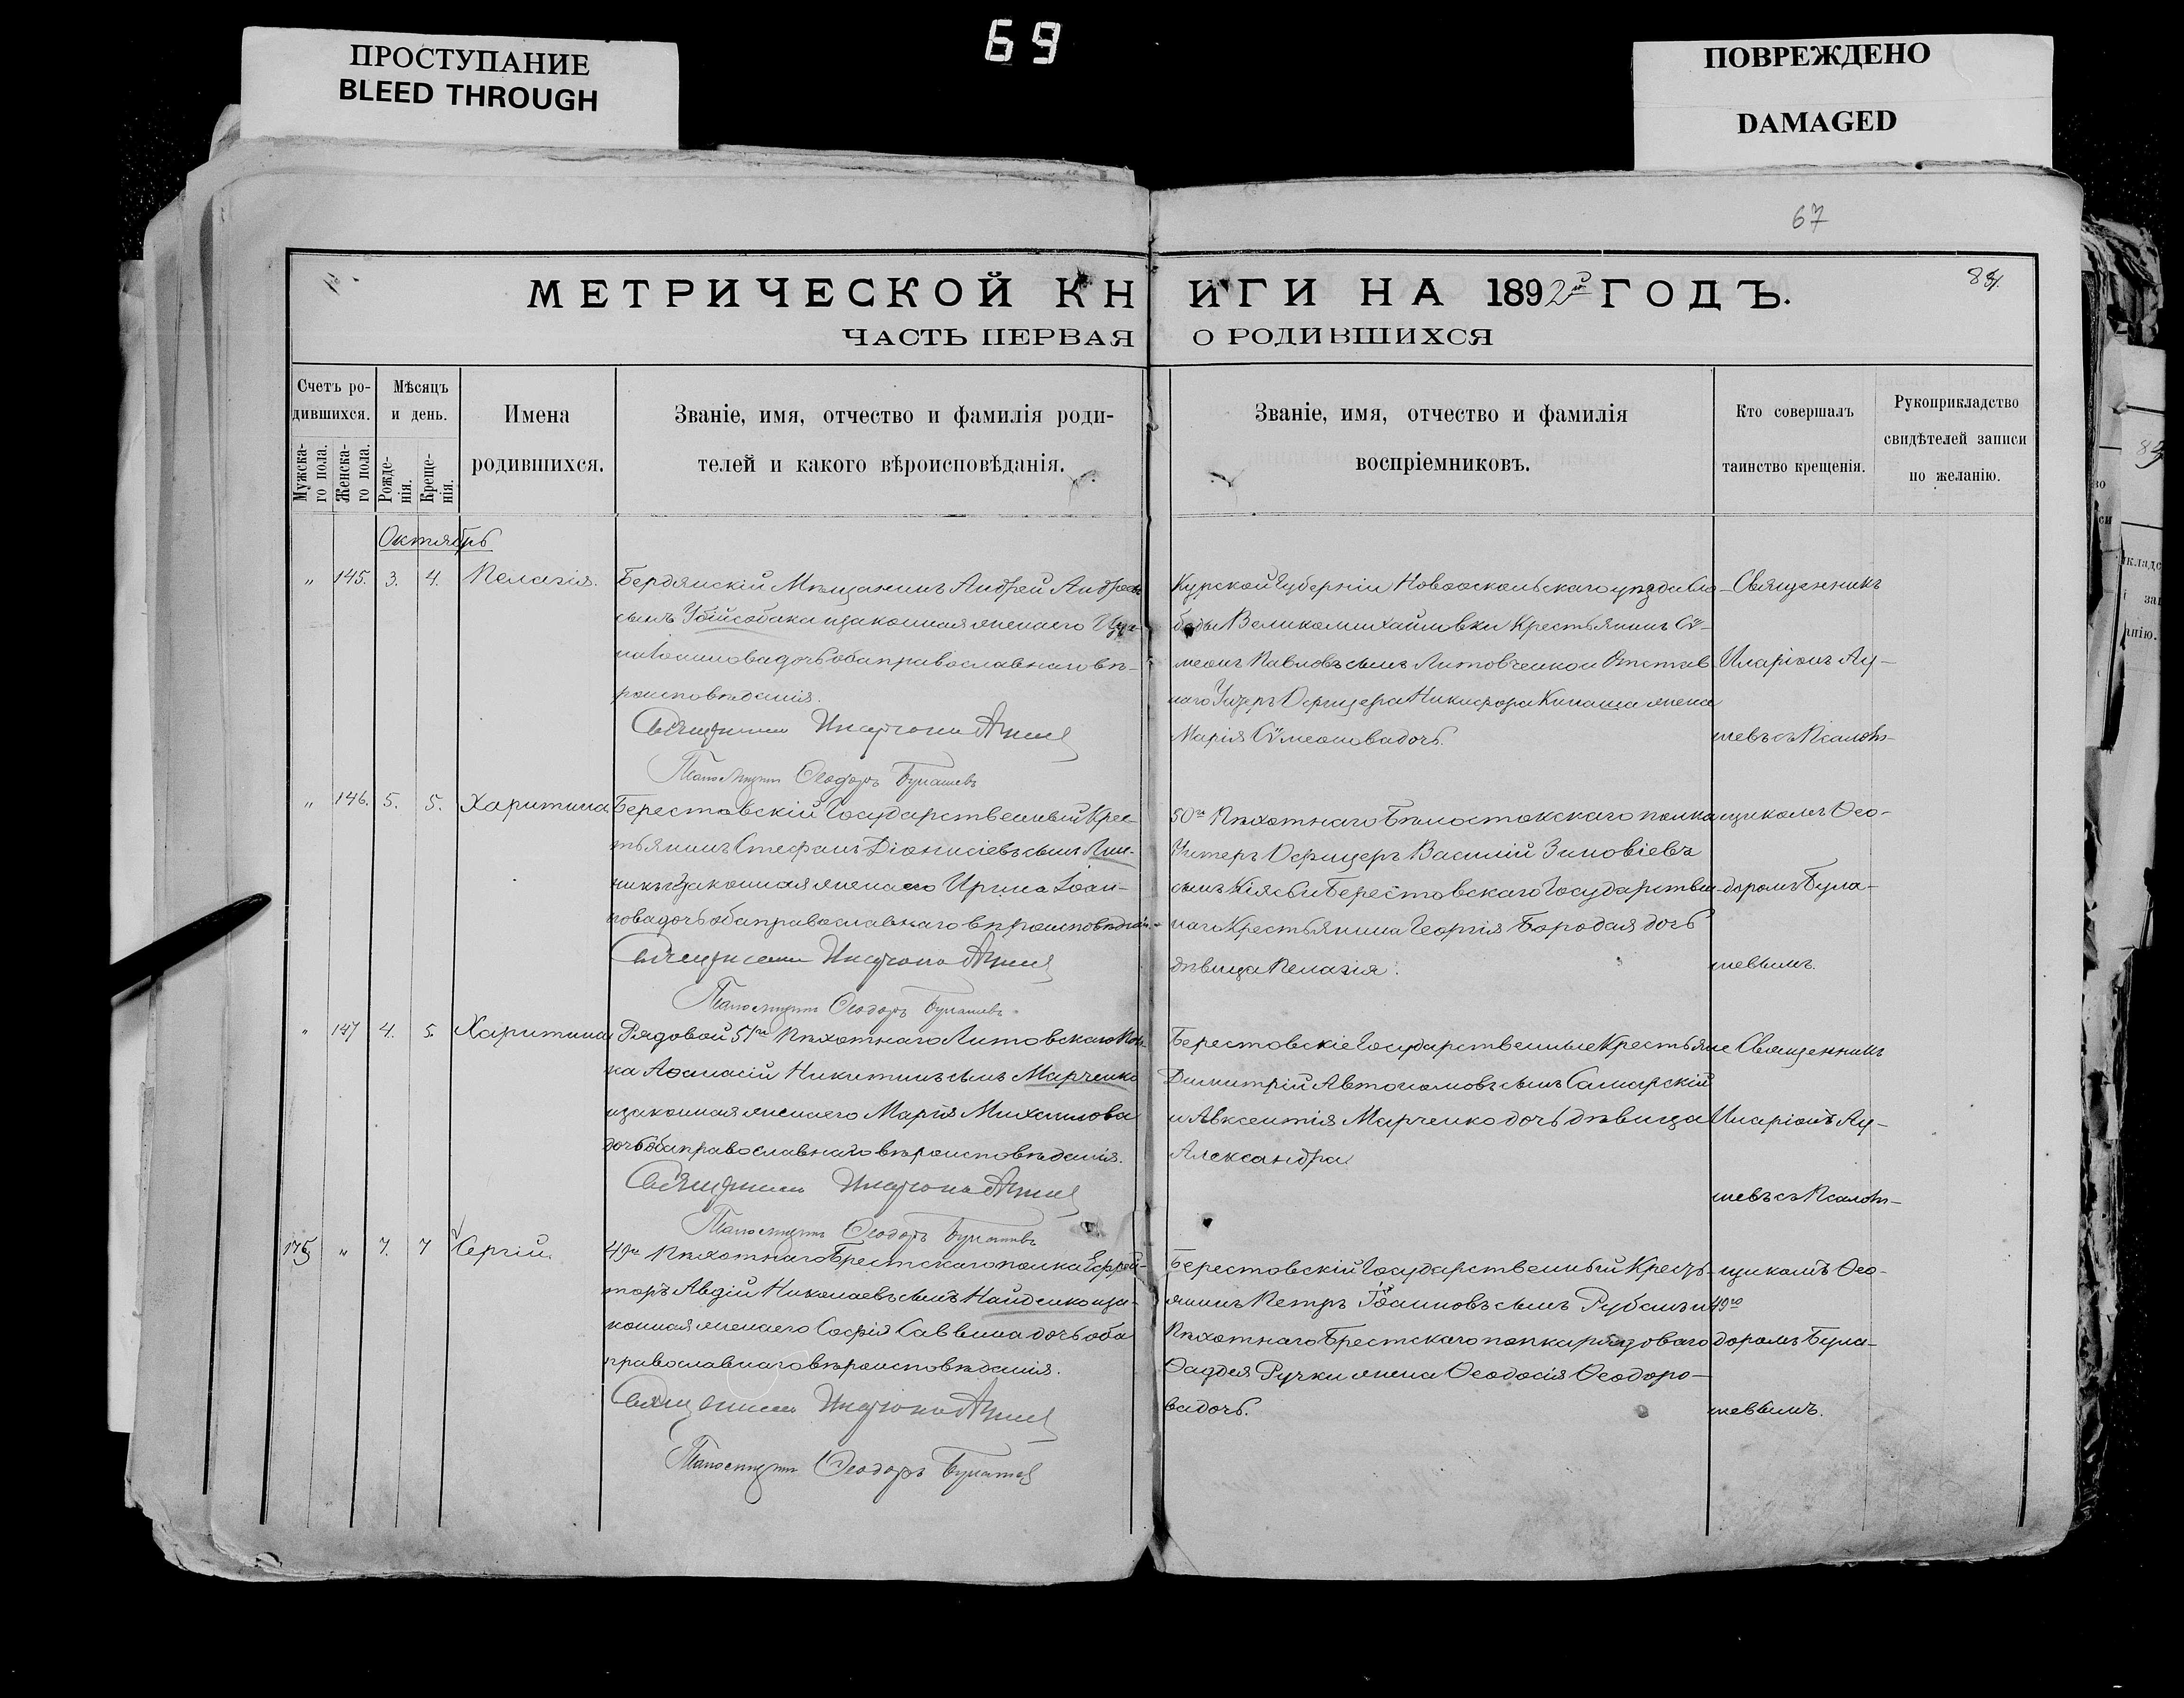 69
ПРОСТУПАНИЕ
BLEED THROUGH
ПОВРЕЖДЕНО
DAMAGED
67
84.
МЕТРИЧЕСКОЙ КНИГИ НА 1892й ГОДЪ.
ЧАСТЬ ПЕРВАЯ О РОДИВШИХСЯ
Счетъ ро-
дившихся.
Мужска-
го пола.
Женска-
го пола.
Мѣсяцъ
и день.
Рожде-
нія.
Креще-
нія.
Имена
родившихся.
Званіе, имя, отчество и фамилія роди-
телей и какого вѣроисповѣданія.
Званіе, имя, отчество и фамилія
воспріемниковъ.
Кто совершалъ
таинство крещенія.
Рукоприкладство
свидѣтелей записи
по желанію.
Октябрь
" 145. 3. 4. Пелагія.
Бердянскій Мѣщанинъ Андрей Андреевъ
сынъ Убійсобака и законная жена его
Іоаннова дочь оба православнаго вѣ-
роисповѣданія.
Священникъ Иларіонъ
Псаломщикъ Ѳеодоръ Булашевъ
Курской Губерніи Новооскольскаго уѣзда Сло-
боды Великомихайловки Крестьянинъ Сѵ-
меонъ Павловъ сынъ Литовченко и Отстав
наго Унтеръ Офицера Никифора Кинаша жена
Марія Сѵмеонова дочь.
Священникъ
Иларіонъ Ау-
шевъ съ Псалом-
" 146. 5. 5. Харитина
Берестовскій Государственный Крес-
тьянинъ Стефанъ Діонисіевъ сынъ Лин-
никъ и законная жена его Ирина Іоан-
нова дочь оба православнаго вѣроисповѣданія.
Священникъ Иларіонъ
Псаломщикъ Ѳеодоръ Булашевъ
50го Пѣхотнаго Бѣлостокскаго полка
Унтеръ Офицеръ Василій Зиновіевъ
сынъ Кіясь и Берестовскаго Государствен-
наго Крестьянина Георгія Бородая дочь
дѣвица Пелагія.
щикомъ Ѳео-
доромъ Була-
шевымъ.
" 147 4. 5. Харитина
Рядовой 51го Пѣхотнаго Литовскаго Пол-
ка Аѳанасій Никитинъ сынъ Марченко
и законная жена его Марія Михаилова
дочь оба православнаго вѣроисповѣданія.
Священникъ Иларіонъ
Псаломщикъ Ѳеодоръ Булашевъ
Берестовскіе Государственные Крестьяне
Димитрій Автономовъ сынъ Самарскій
и Авксентія Марченко дочь дѣвица
Александра
Священникъ
Иларіонъ Ау-
шевъ съ Псалом-
175 " 7. 7 Сергій.
49го Пѣхотнаго Брестскаго полка Ефрей-
торъ Авдій Николаевъ сынъ Найденко и за-
конная жена его Софія Саввина дочь оба
православнаго вѣроисповѣданія.
Священникъ Иларіонъ
Псаломщикъ Ѳеодоръ Булашевъ
Берестовскій Государственный Кресть-
янинъ Петръ Іоанновъ сынъ Рубанъ и 49го
Пѣхотнаго Брестскаго полка рядоваго
Ѳаддея Ручки жена Ѳеодосія Ѳеодоро-
ва дочь.
щикомъ Ѳео-
доромъ Була-
шевымъ.